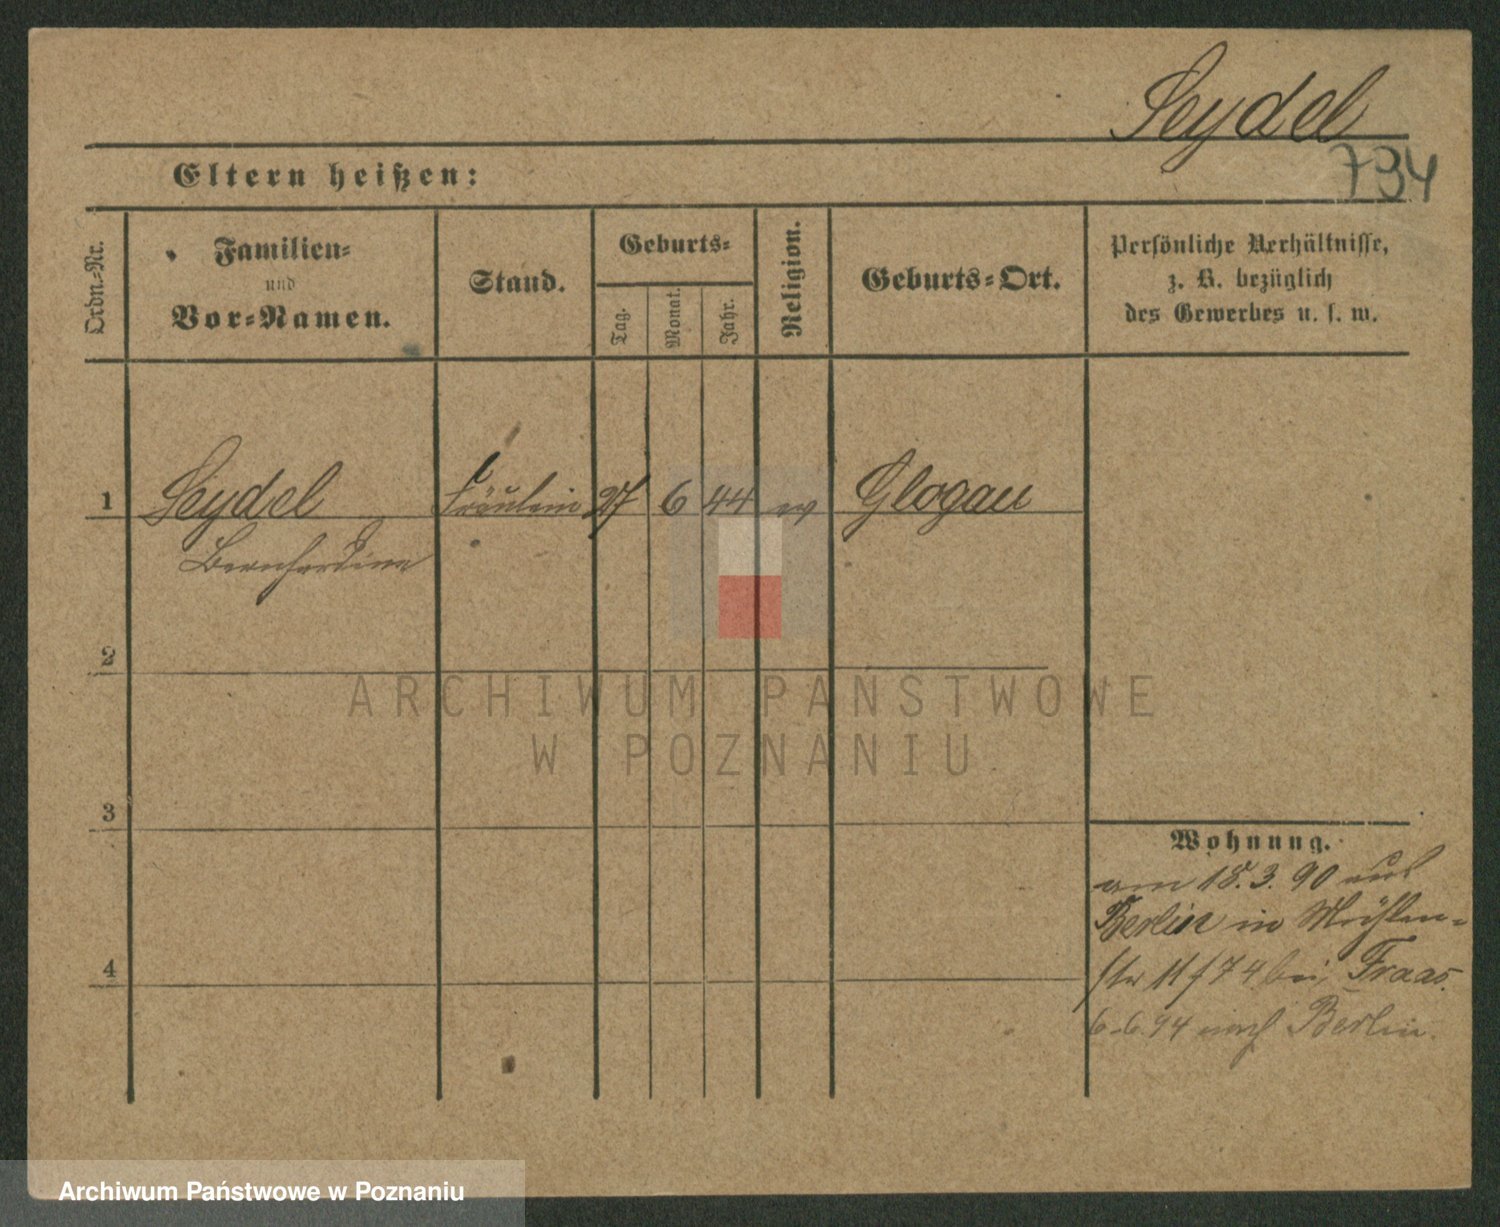 Seydel
734
Eltern heißen:
Ordn.-Nr.
Familien-
und
Vor-Namen.
Stand.
Geburts-
Tag.
Monat.
Jahr.
Religion.
Geburts-Ort.
Persönliche Verhältnisse,
z. B. bezüglich
des Gewerbes u. s. w.
1 Seydel Fräulein 27 6 44 ev Glogau
Bernhardine
2
3
4
Wohnung.
am 18.3.90 aus
Berlin in Mühlen-
str 11 f 74 bei Fraas.
6.6.94 nach Berlin.
ARCHIWUM PAŃSTWOWE
W POZNANIU
Archiwum Państwowe w Poznaniu